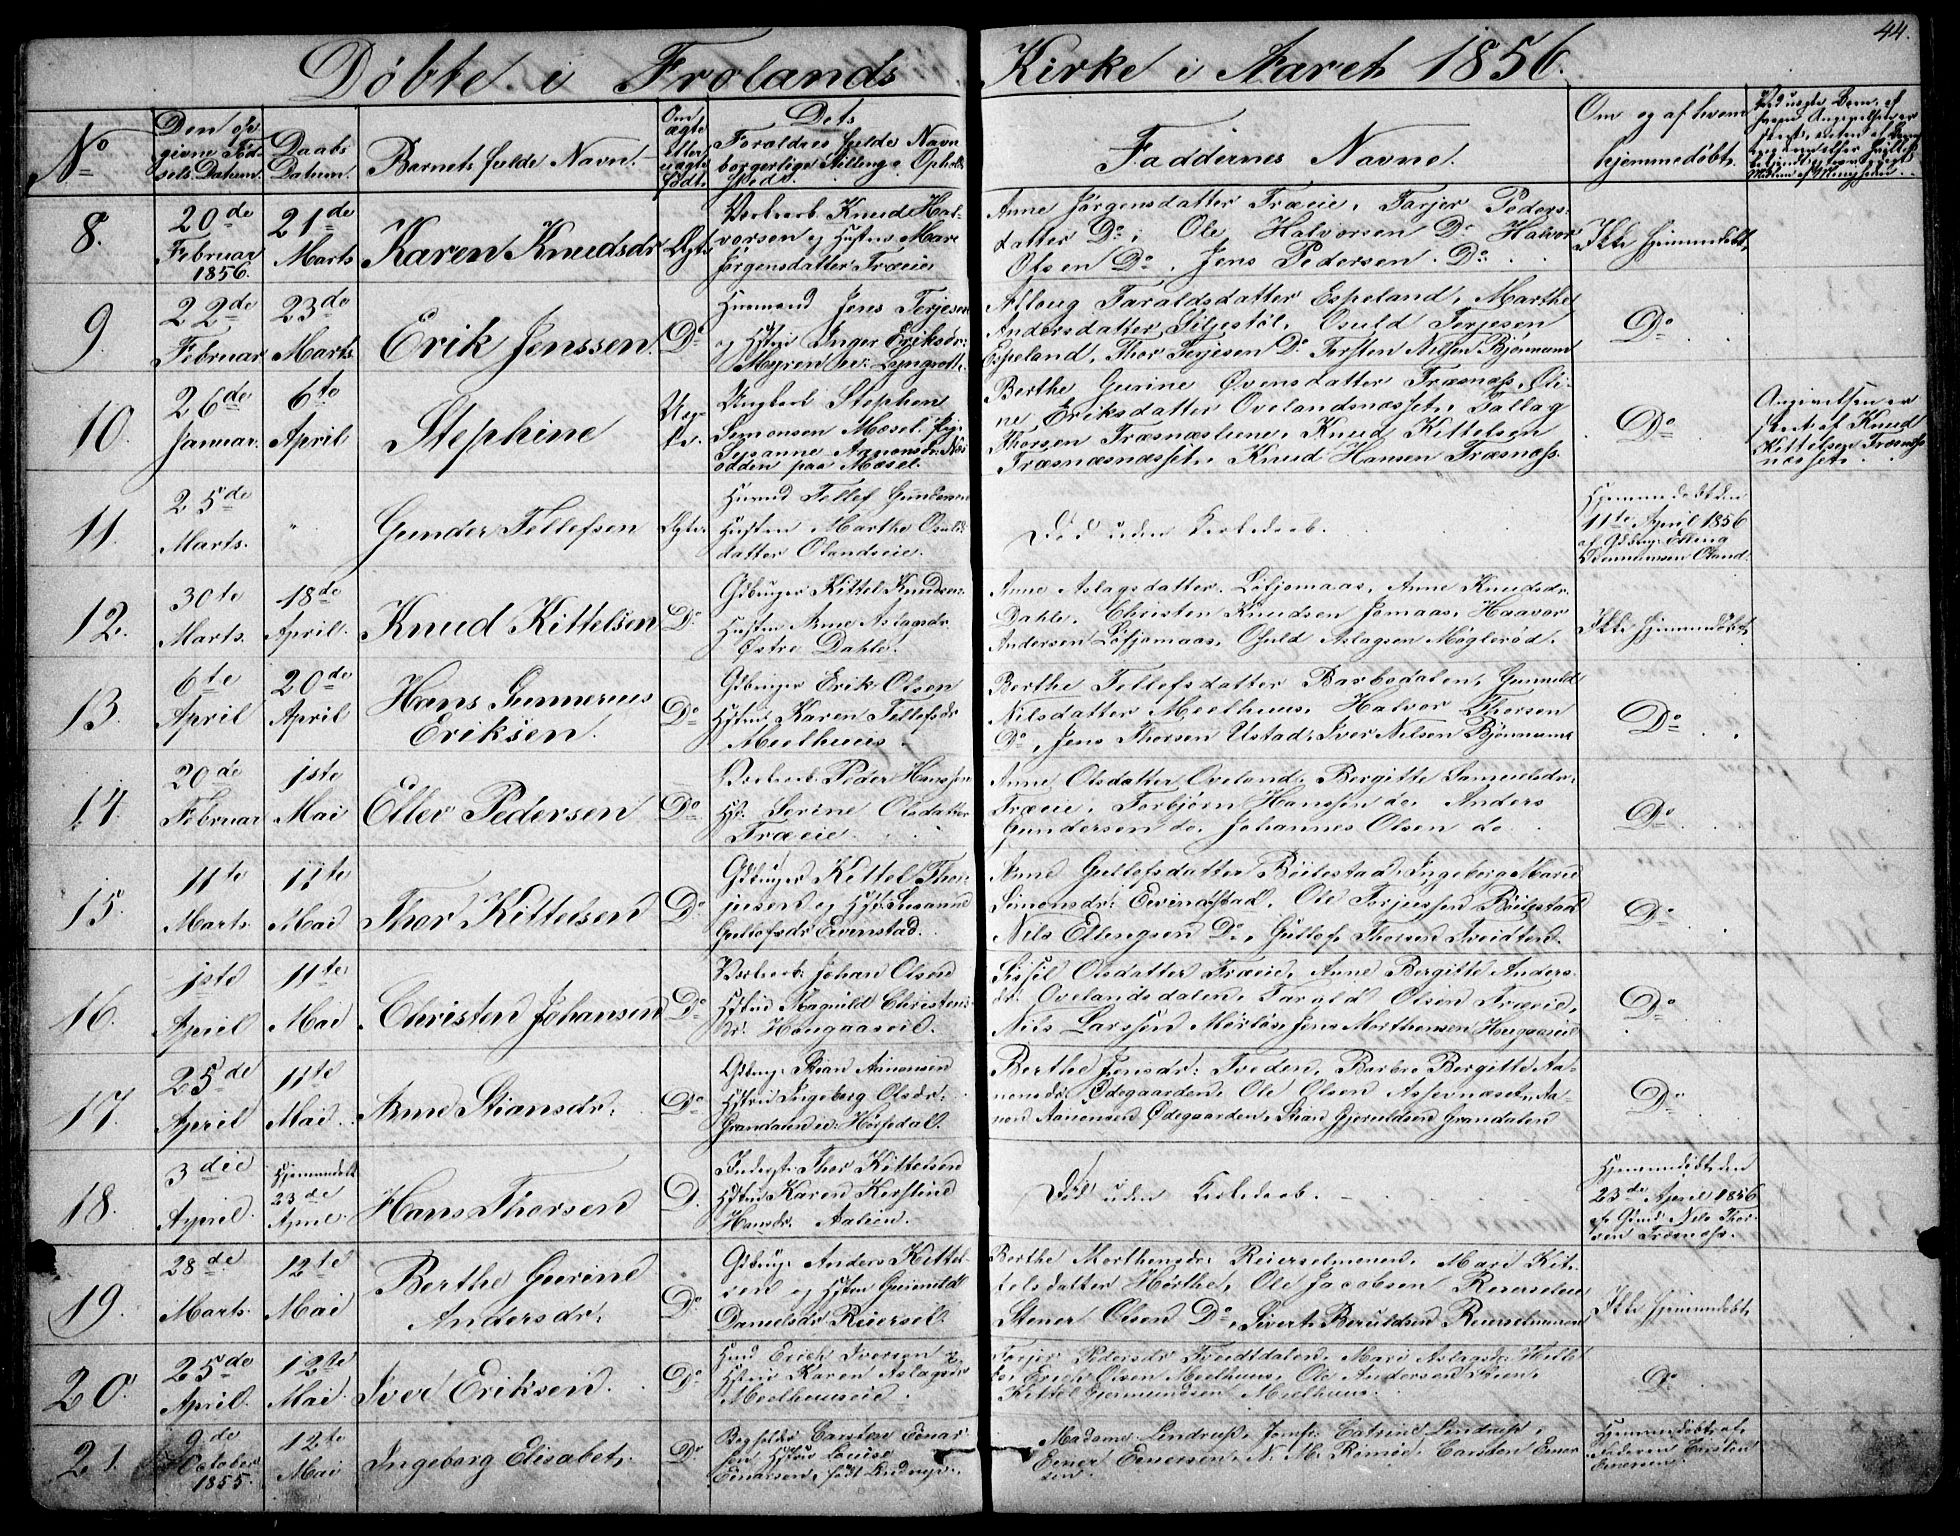 44.
Döbte i Frolands Kirke i Aaret 1856.
No
Den opgivne Födsels Datum.
Daabs Datum.
Barnets fulde Navn.
Om ægte eller uægte födt.
Dets Foraldres fulde Navn borgerlige Stilling Opholdssted.
Faddernes Navne.
Om og af hvem hjemmedöbt.
8.
20de Februar 1856.
21de Marts
Karen Knudsdr
Ægte
Knud Halvorsen og Hustru Mari
Jörgensdatter Træeie
Anne Jörgensdatter Træeie, Tarjer Peders-
datter Do, Ole Halvorsen Do Halvor
Olsen Do, Jens Pedersen. Do
Ikke hjemmedöbt
9.
22de Februar
23de Marts
Erik Jenssen.
Do
Huusmand Jens Terjesen
og Hstru Inger Eriksdr:
Myrene
Aslaug Taraldsdatter Espeland, Marthe
Andersdatter Siljestöl, Osuld Terjesen
Espeland, Thor Terjesen Do Tersten Nilsen Bjönnum
Do
10.
26de Januar.
6te April
Stephine
Uægte.
Ungkarl Stephen
Semonsen Mæsel, Pige
Susanne Aanonsdr Næs
odden paa Mæsel.
Berthe Gurine Övensdatter Træsnæss, Oli-
ne Eriksdatter Ovelandsnæsset, Tallag
Thorsen Træsnæsliene, Knud Kittelsen
Træsnæsnæsset, Knud Hansen Træsnæss.
Do
Angivelsen er
skeet af Knud
Kittelsen Træsnæss
næsset.
11.
25de Marts.
"
Gunder Tellefsen
Ægte.
Huusmd Tellef Gundersen
Hustru Marthe Osulds
datter Olandseie.
Död uden Kirkedaab.
Hjemmedöbt den
11te April 1856
af Gdbrg: Elling
Oland
12.
30te Marts.
18de April.
Knud Kittelsen
Do
Gdbruger Kittel Knudsen
Hustru Anne Aslagsdr
Östre Dahle.
Anne Aslagsdatter Löfjomaas, Anne Knudsdr.
Dahle, Christen Knudsen Jomaas, Haavor
Andersen Löfjomaas, Osuld Aslagsen Mögleröd.
Ikke hjemmedöbt
13.
6te April
20de April
Hans Gunnerius Eriksen.
Do
Gdbruger Erik Olsen
Hstru Karen Tellefsdr
Meelhuus.
Berthe Tellefsdatter Barbodalen, Gunneld
Nilsdatter Meelhuus, Halvor Thorsen
Do, Jens Thorsen Ustad, Iver Nilsen Bjönnum
Do
14.
20de Februar
1ste Mai
Eller Pedersen
Do
Peder Hanssen
Hst. Serine Olsdatter
Træeie.
Anne Olsdatter Oveland, Bergitte Samuelsdr.
Træeie, Torbjörn Hanssen do Anders
Gundersen do, Johannes Olsen do
Do
15.
11te Marts.
11te Mai
Thor Kittelsen
Do
Gdbruger Kittel Thor-
jusen og Hst. Susanne
Gullefsdr Eivinstad.
Anne Gullefsdatter Böilestad, Ingeborg Marie
Simonsdr: Eivindstad, Ole Torjussen Böilestad
Nils Ellingsen Do, Gullof Thorsen Tveidten.
Do
16.
1ste April
11te Mai
Christen Johansen
Do
Johan Olsen
Hstru Ragnild Christens
dr. Hougaaseie.
Sissel Olsdatter Træeie, Anne Bergitte Anders-
dr: Ovelandsdalen, Tarald Olsen Træeie,
Nils Larssen Mörlös, Jens Morthensen Hougaaseie
Do
17.
25de April
11te Mai
Anne Stiansdr.
Do
Gdbrug: Stian Aanonsen
Hstru Ingeborg Olsdr.
Grandalen
Berthe Jensdr: Tveden, Barbro Bergitte Aa-
nonsdr. Ödegaarden, Ole Olsen Assevnæset, Aa-
non Aanonsen Ödegaarden, Stian Gjeruldsen Grandalen
Do
18.
3die April
Hjemmedöbt 23de April.
Hans Thorsen
Do
Inderst: Thor Kittelsen
Hstru Karen Kirstine
Hansdr.
Död uden Kirkedaab.
Hjemmedöbt den
23de April 1856
af Gmd: Nils Thor-
sen Træsnæss.
19.
28de Marts.
12te Mai
Berthe Gurine Andersdr.
Do
Gdbrug: Anders Kittel-
sen og Hstru Gunnild
Danielsdr Reiersel.
Berthe Morthensdr: Reierselmoen, Mari Kit-
telsdatter Hörthe, Ole Jacobsen Reierseleie
Stener Olsen Do, Sivert Beruldsen Reierselmoen
Ikke hjemmedöbt.
20.
25de April.
12te Mai.
Iver Eriksen.
Do
Hmd Erich Iversen og
Hstru Karen Aslagsdr
Meelhuuseie.
Torjer Pedersdr Tveidtdalen, Mari Aslagsdr.
Erich Olsen Meelhuus, Ole Andersen
Kittel Gjermundsen Meelhuus.
Do
21.
9de October 1855.
12te Mai
Ingeborg Elisabet.
Do
Carsten Einar
sen, Hstru Louise
Einarsen, född Lindrup.
Madame Lindrup, Jomf. Catrine Lindrup,
Einer Einersen, N. M. Carsten Einer
sen.
Hjemmedöbt af
Faderen Carsten
Einersen.